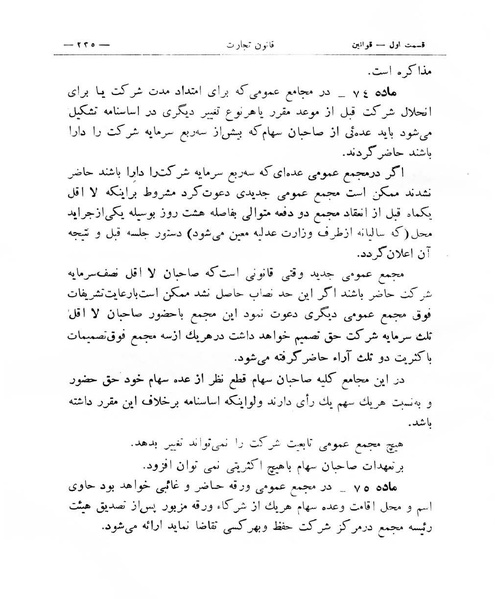 قسمت اول — قوانین قانون تجارت — ۲۳۵ —
مذاکره است.
ماده ۷۴ – در مجامع عمومی‌که برای امتداد مدت شرکت یا برای
انحلال شرکت قبل از موعد مقرر یاهرنوع تغییر دیگری در اساسنامه تشکیل
می‌شود باید عده‌ئی از صاحبان سهام‌که بیش‌از سه‌ربع سرمایه شرکت را دارا
باشند حاضرگردند.
اگر درمجمع عمومی عده‌ای‌که سه‌ربع سرمایه شرکت‌را دارا باشند حاضر
نشدند ممکن است مجمع عمومی جدیدی دعوت‌کرد مشروط براینکه لا اقل
یکماه قبل از انعقاد مجمع دو دفعه متوالی بفاصله هشت روز بوسیله یکی‌ازجراید
محل(که سالیانه ازطرف وزارت عدلیه معین می‌شود) دستور جلسه قبل و نتیجه
آن اعلان‌گردد.
مجمع عمومی جدید وقتی قانونی است‌که صاحبان لا اقل نصف‌سرمایه
شرکت حاضر باشند اگر این حد نصاب حاصل نشد ممکن است‌بارعایت‌تشریفات
فوق مجمع عمومی دیگری دعوت نمود این مجمع باحضور صاحبان لا اقل
ثلث سرمایه شرکت حق تصمیم خواهد داشت درهریك ازسه مجمع فوق‌تصمیمات
باکثریت دو ثلث آراء حاضرگرفته می‌شود.
در این مجامع کلیه صاحبان سهام قطع نظر از عده سهام خود حق حضور
و به‌نسبت هریك سهم یك رأی دارند ولواینکه اساسنامه برخلاف این مقرر داشته
باشد.
هیچ مجمع عمومی تابعیت شرکت را نمی‌تواند تغییر بدهد.
برتعهدات صاحبان سهام باهیچ اکثریتی نمی توان افزود.
ماده ۷۵ – در مجمع عمومی ورقه حاضر و غائبی خواهد بود حاوی
اسم و محل اقامت وعده سهام هریك از شرکاء ورقه مزبور پس‌از تصدیق هیئت
رئیسه مجمع درمرکز شرکت حفظ وبهرکسی تقاضا نماید ارائه می‌شود.